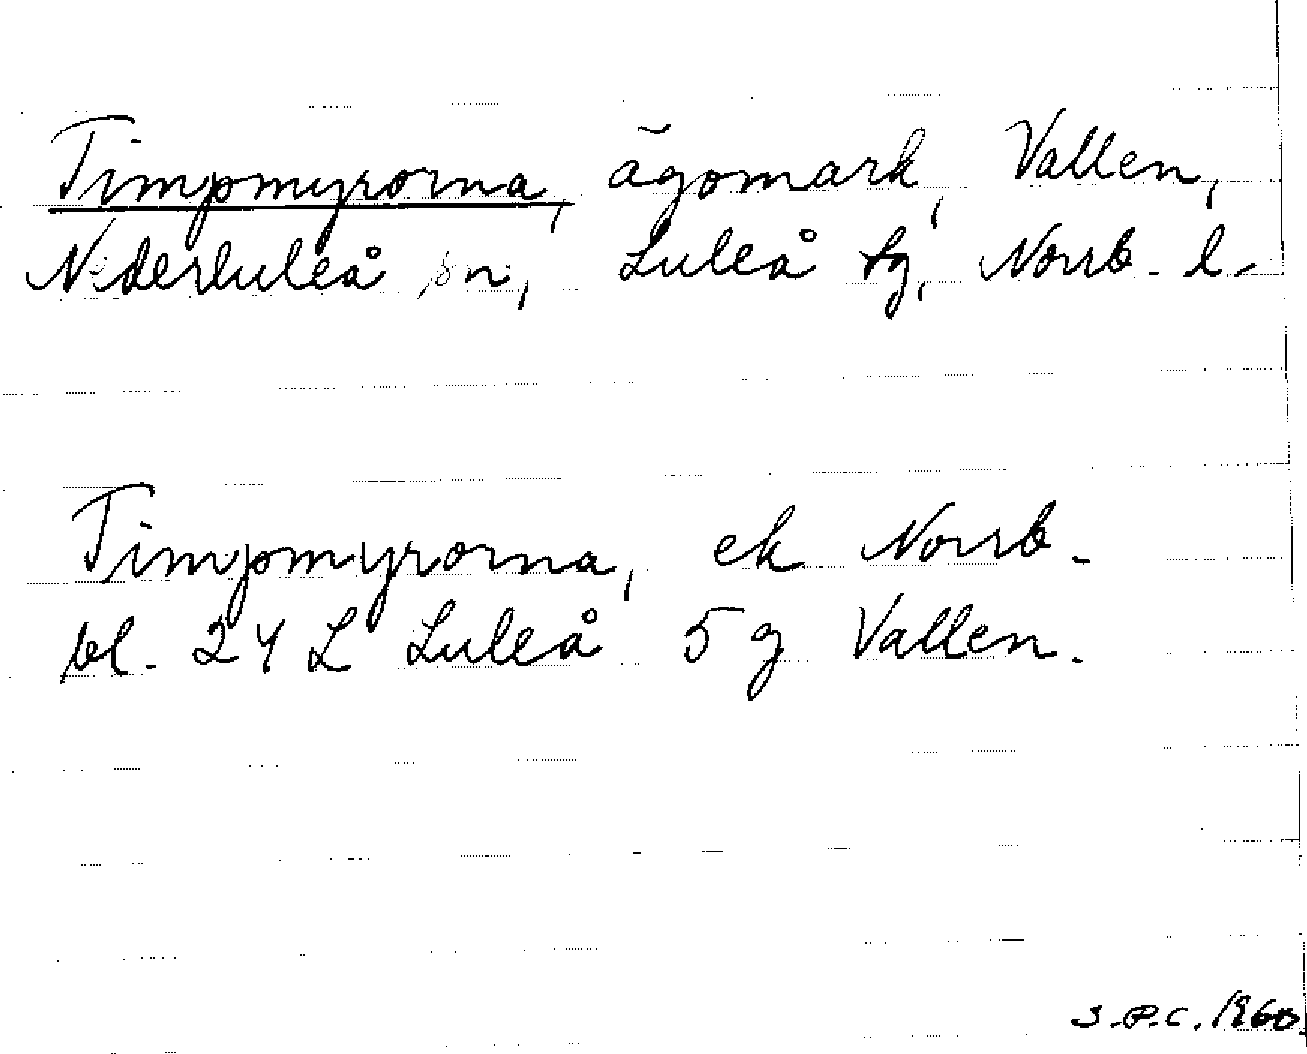 Timpmyrorna, ägomark, Vallen,
Nederluleå sn, Luleå tg, Norrb. l.
Timpmyrorna, ek Norrb.
bl. 24 L Luleå 5 g Vallen.
S.P.C. 1960.